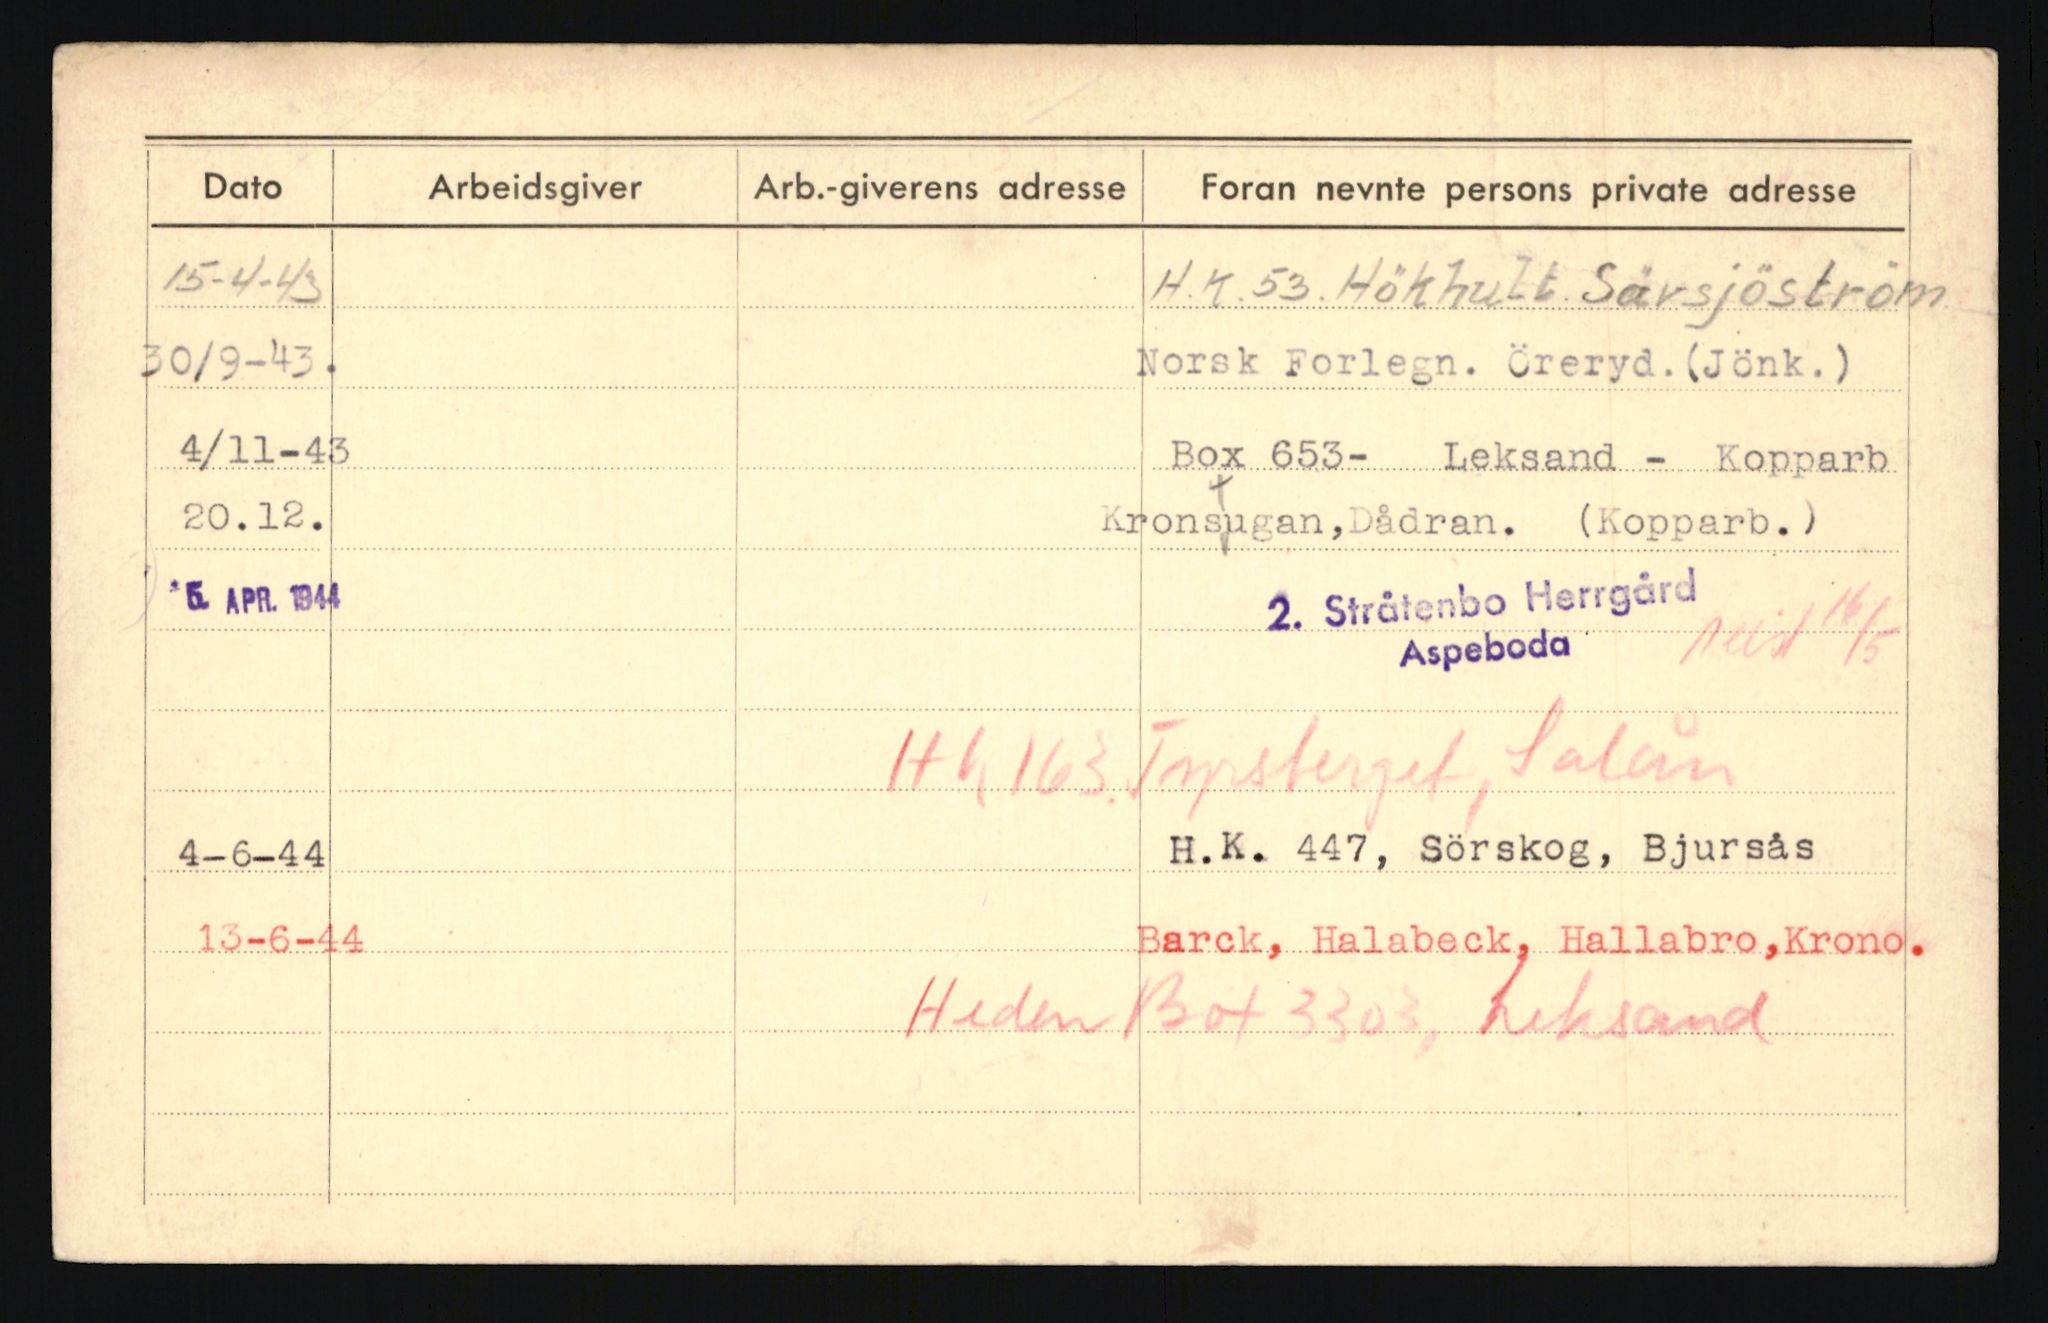 Dato Arbeidsgiver Arb.-giverens adresse Foran nevnte persons private adresse
15-4-43 H.K. 53. Hökhult Särsjöström
30/9-43. Norsk Forlegn. Öreryd.(Jönk.)
4/11-43 Box 653- Leksand - Kopparb
20.12. Kronstugan,Dådran. (Kopparb.)
5. APR. 1944 2. Stråtenbo Herrgård
Aspeboda reist 16/5
163. Tyrsberget, Salån
4-6-44 H.K. 447, Sörskog, Bjursås
13-6-44 Barck, Halabeck, Hallabro,Krono.
Heden Box 3303, Leksand